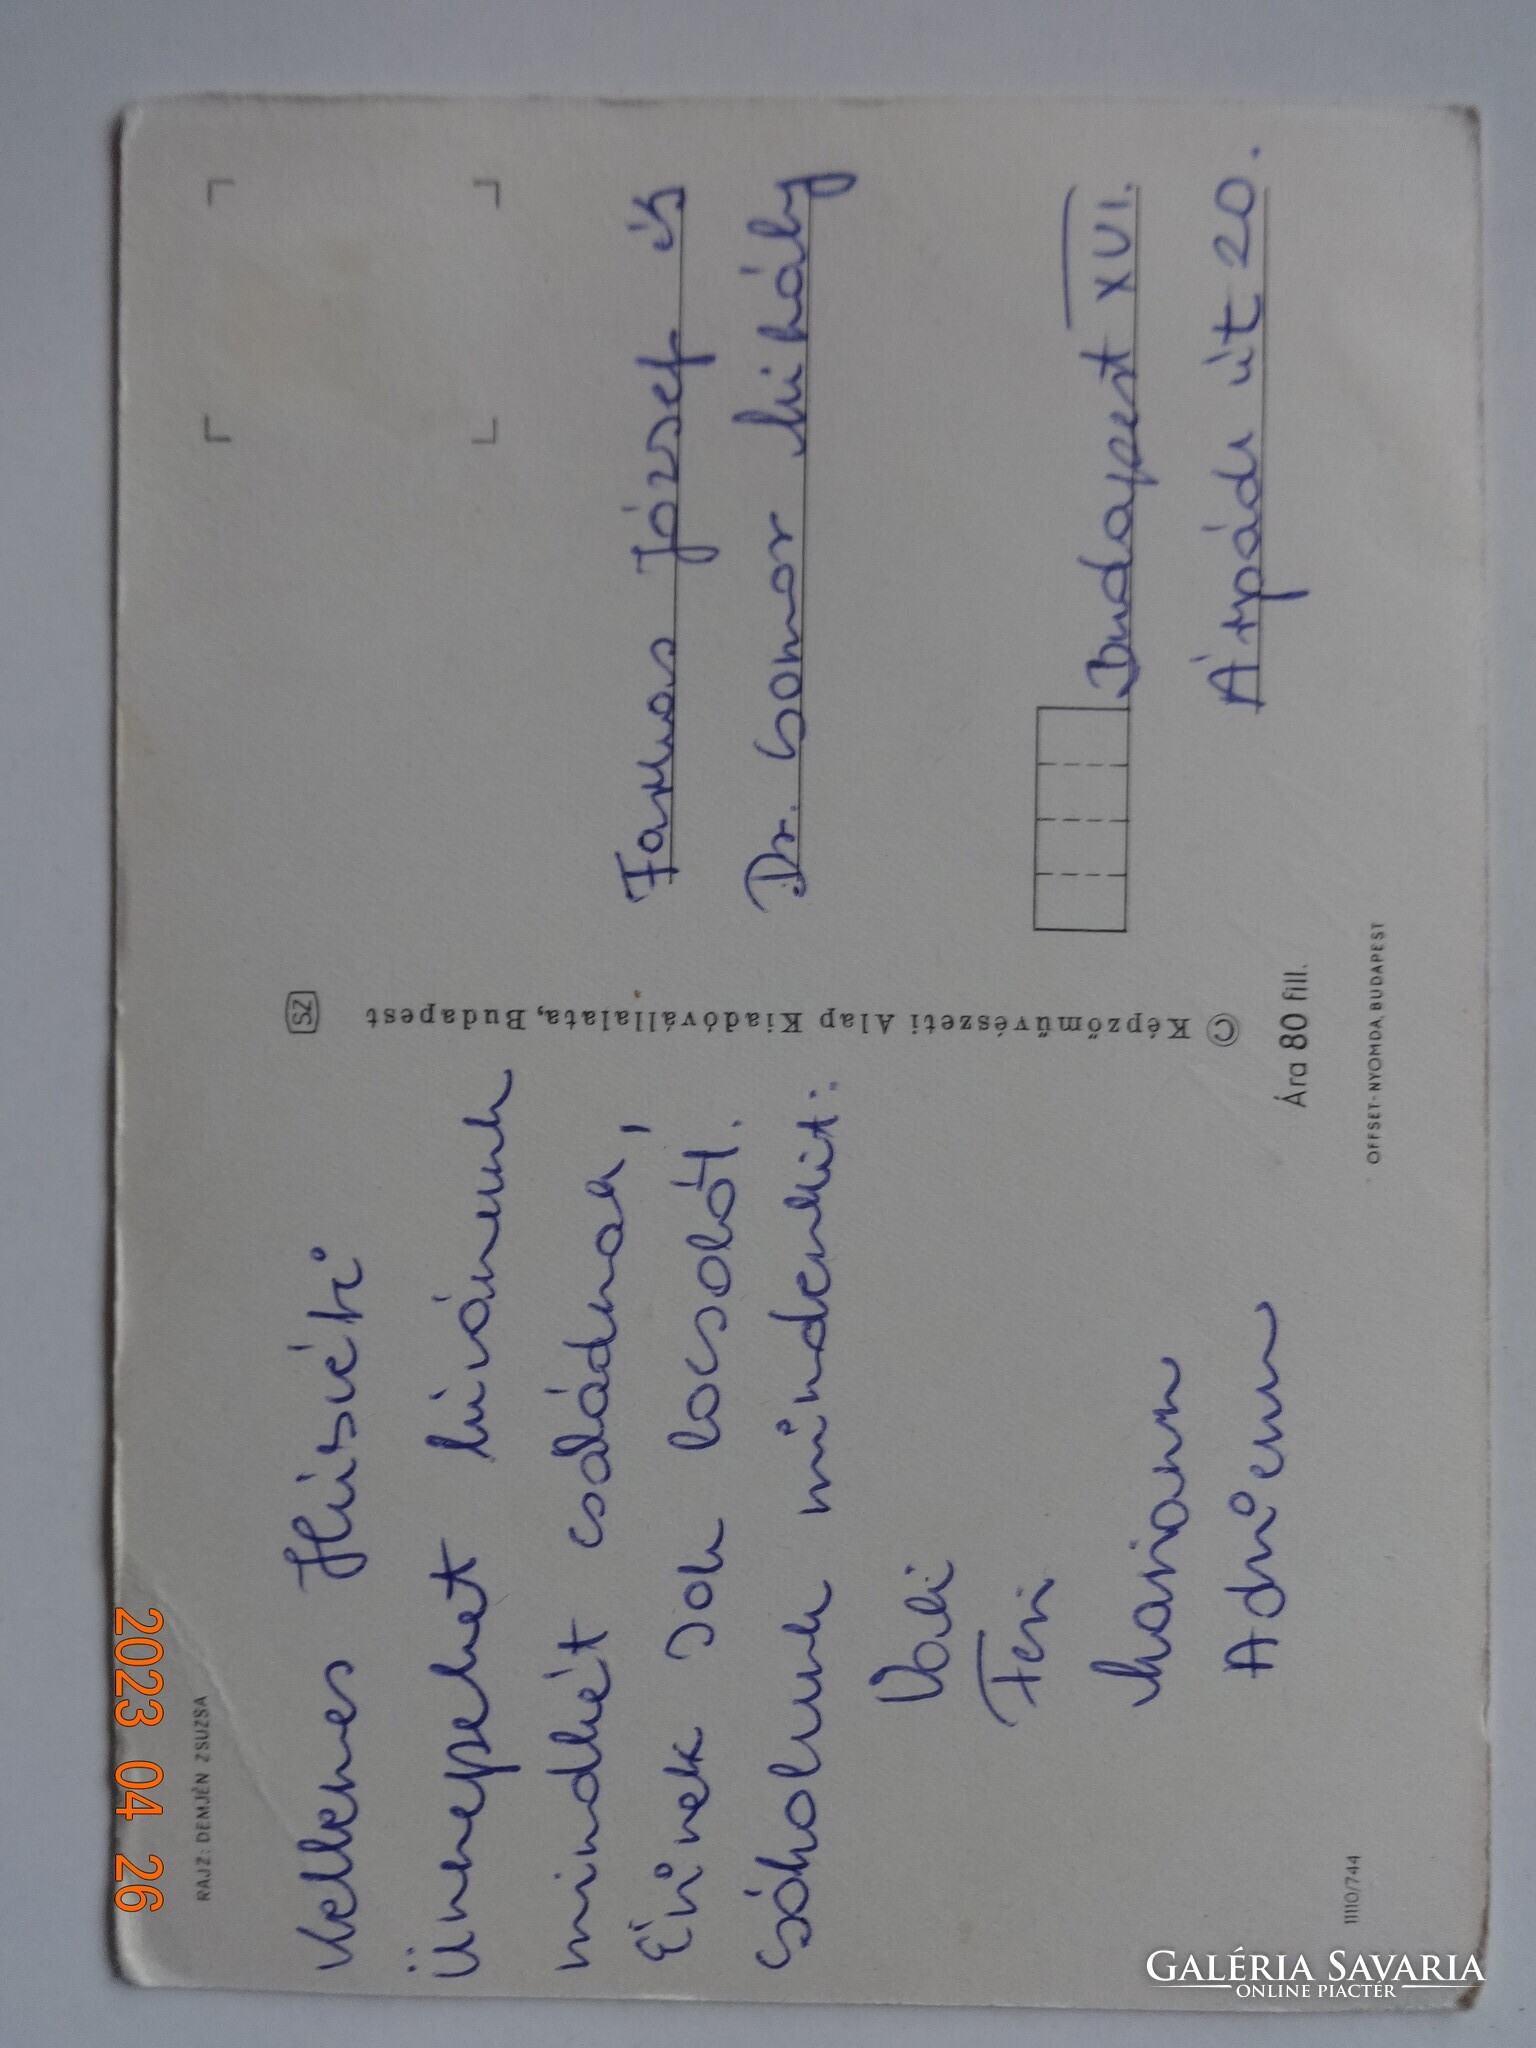 RAJZ: DEMJÉN ZSUZSA
Kellemes Húsvéti
Ünnepeket kívánunk
mindkét családnak,
Érinek sok locsolót.
csókolunk mindenkit:
Vali
Feri
Mariann
Adrienn
11110/744
SZ
© Képzőművészeti Alap Kiadóvállalata, Budapest
Ára 80 fill.
OFFSET-NYOMDA, BUDAPEST
Farkas József és
Dr. Gomor Mihály
Budapest XVI.
Árpádi út 20.
2023 04 26
GALÉRIA SAVARIA
ONLINE PIACTÉR